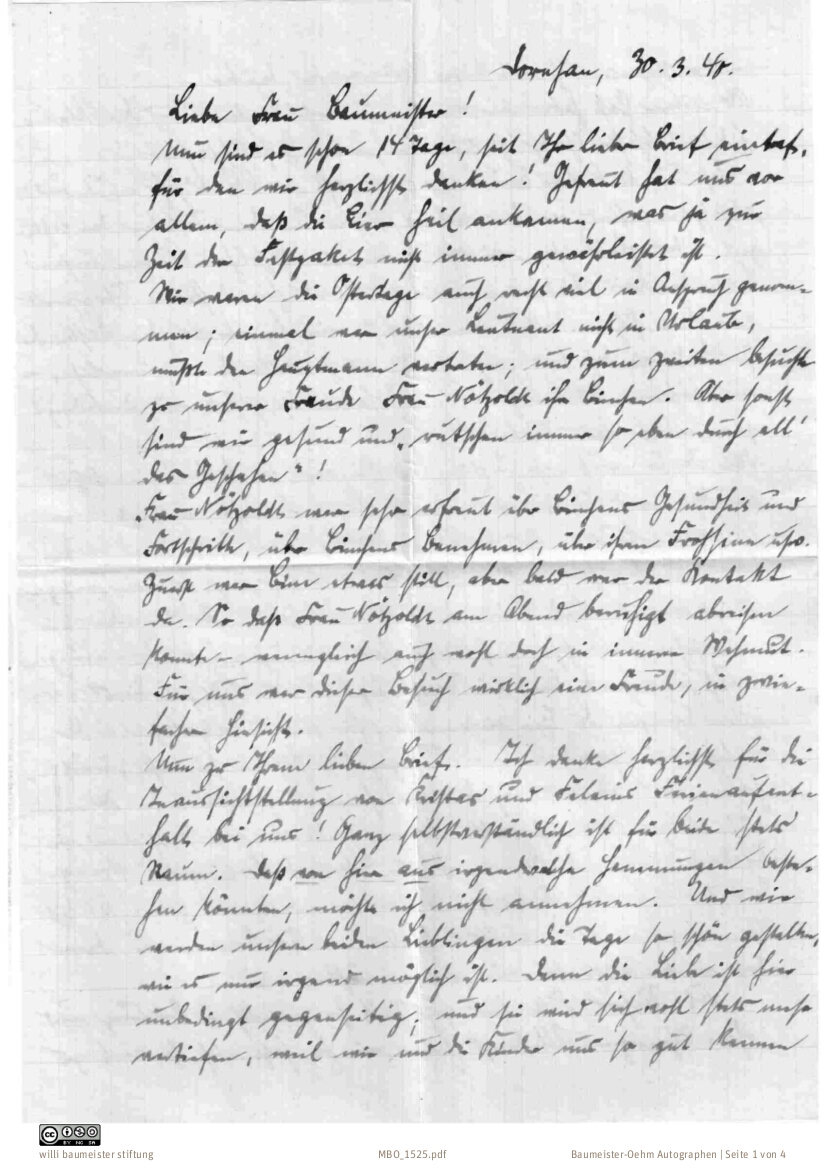 Dornhan, 30.3.40.
Liebe Frau Baumeister!
Nun sind es schon 14 Tage, seit Ihr lieber Brief eintraf,
für den wir herzlichst danken! Gefreut hat uns vor
allem, daß die Eier heil ankamen, was ja zur
Zeit der Festpakete nicht immer gewährleistet ist.
Wir waren die Ostertage auch recht viel in Anspruch genom-
men; einmal war unser Leutnant nicht in Urlaub,
mußte den Hauptmann vertreten; und zum zweiten besuchte
zu unserer Freude Frau Nötzoldt ihr Binchen. Aber sonst
sind wir gesund und „rutschen immer so eben durch all'
das Geschehen"!
Frau Nötzoldt war sehr erfreut über Binchens Gesundheit und
Fortschritte, über Binchens Benehmen, über ihren Frohsinn usw.
Zuerst war Bine etwas still, aber bald war der Kontakt
da. So daß Frau Nötzoldt am Abend beruhigt abreisen
konnte – wenngleich auch wohl doch in innerer Wehmut.
Für uns war dieser Besuch wirklich eine Freude, in zwie-
facher Hinsicht.
Nun zu Ihrem lieben Brief. Ich danke herzlichst für die
Inaussichtstellung von Kristas und Felicius Ferienaufent-
halt bei uns! Ganz selbstverständlich ist für beide stets
Raum. Daß von hier aus irgendwelche Hemmungen beste-
hen könnten, möchte ich nicht annehmen. Und wir
werden unseren beiden Lieblingen die Tage so schön gestalten,
wie es nur irgend möglich ist. Denn die Liebe ist hier
unbedingt gegenseitig; und sie wird sich wohl stets mehr
vertiefen, weil wir und die Kinder uns so gut kennen
willi baumeister stiftung MBO_1525.pdf Baumeister-Oehm Autographen | Seite 1 von 4